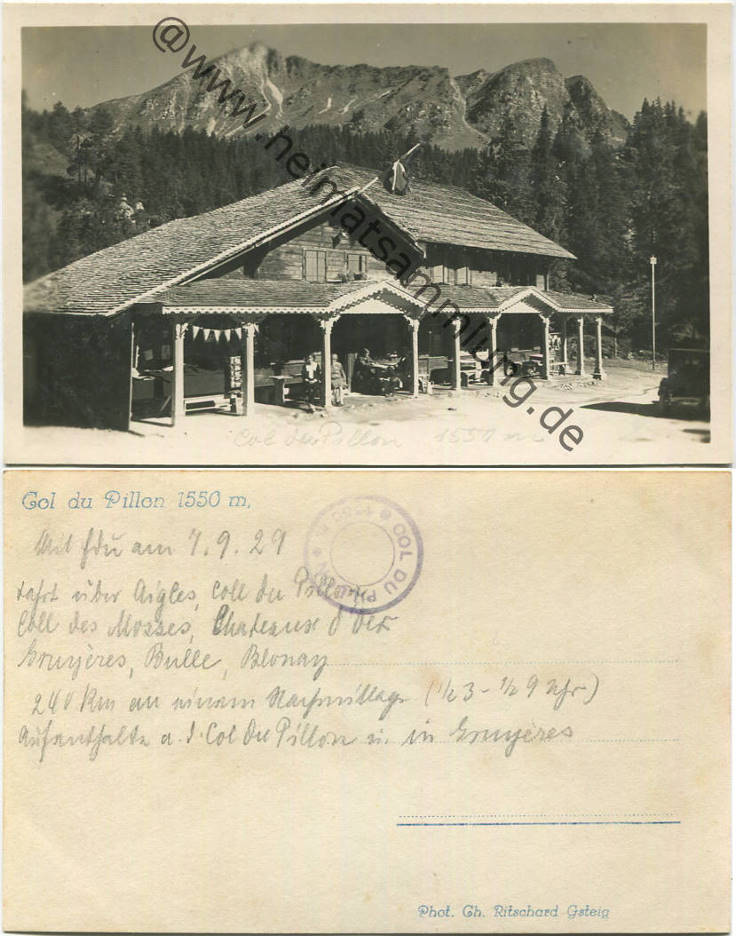 @www.heimatsammlung.de
Col du Pillon 1550 m
Col du Pillon 1550 m,
COL DU PILLON * 1550 m *
Mit Edu am 7.9.29
Fahrt über Aigles, Coll du Pillon
Coll des Mosses, Chateaux d
Gruyères, Bulle, Blonay
240 Km an einem Nachmittage (½3 - ½9 Uhr)
Aufenthalte a. d. Col du Pillon u. in Gruyères
Phot. Gh. Ritschard Gsteig